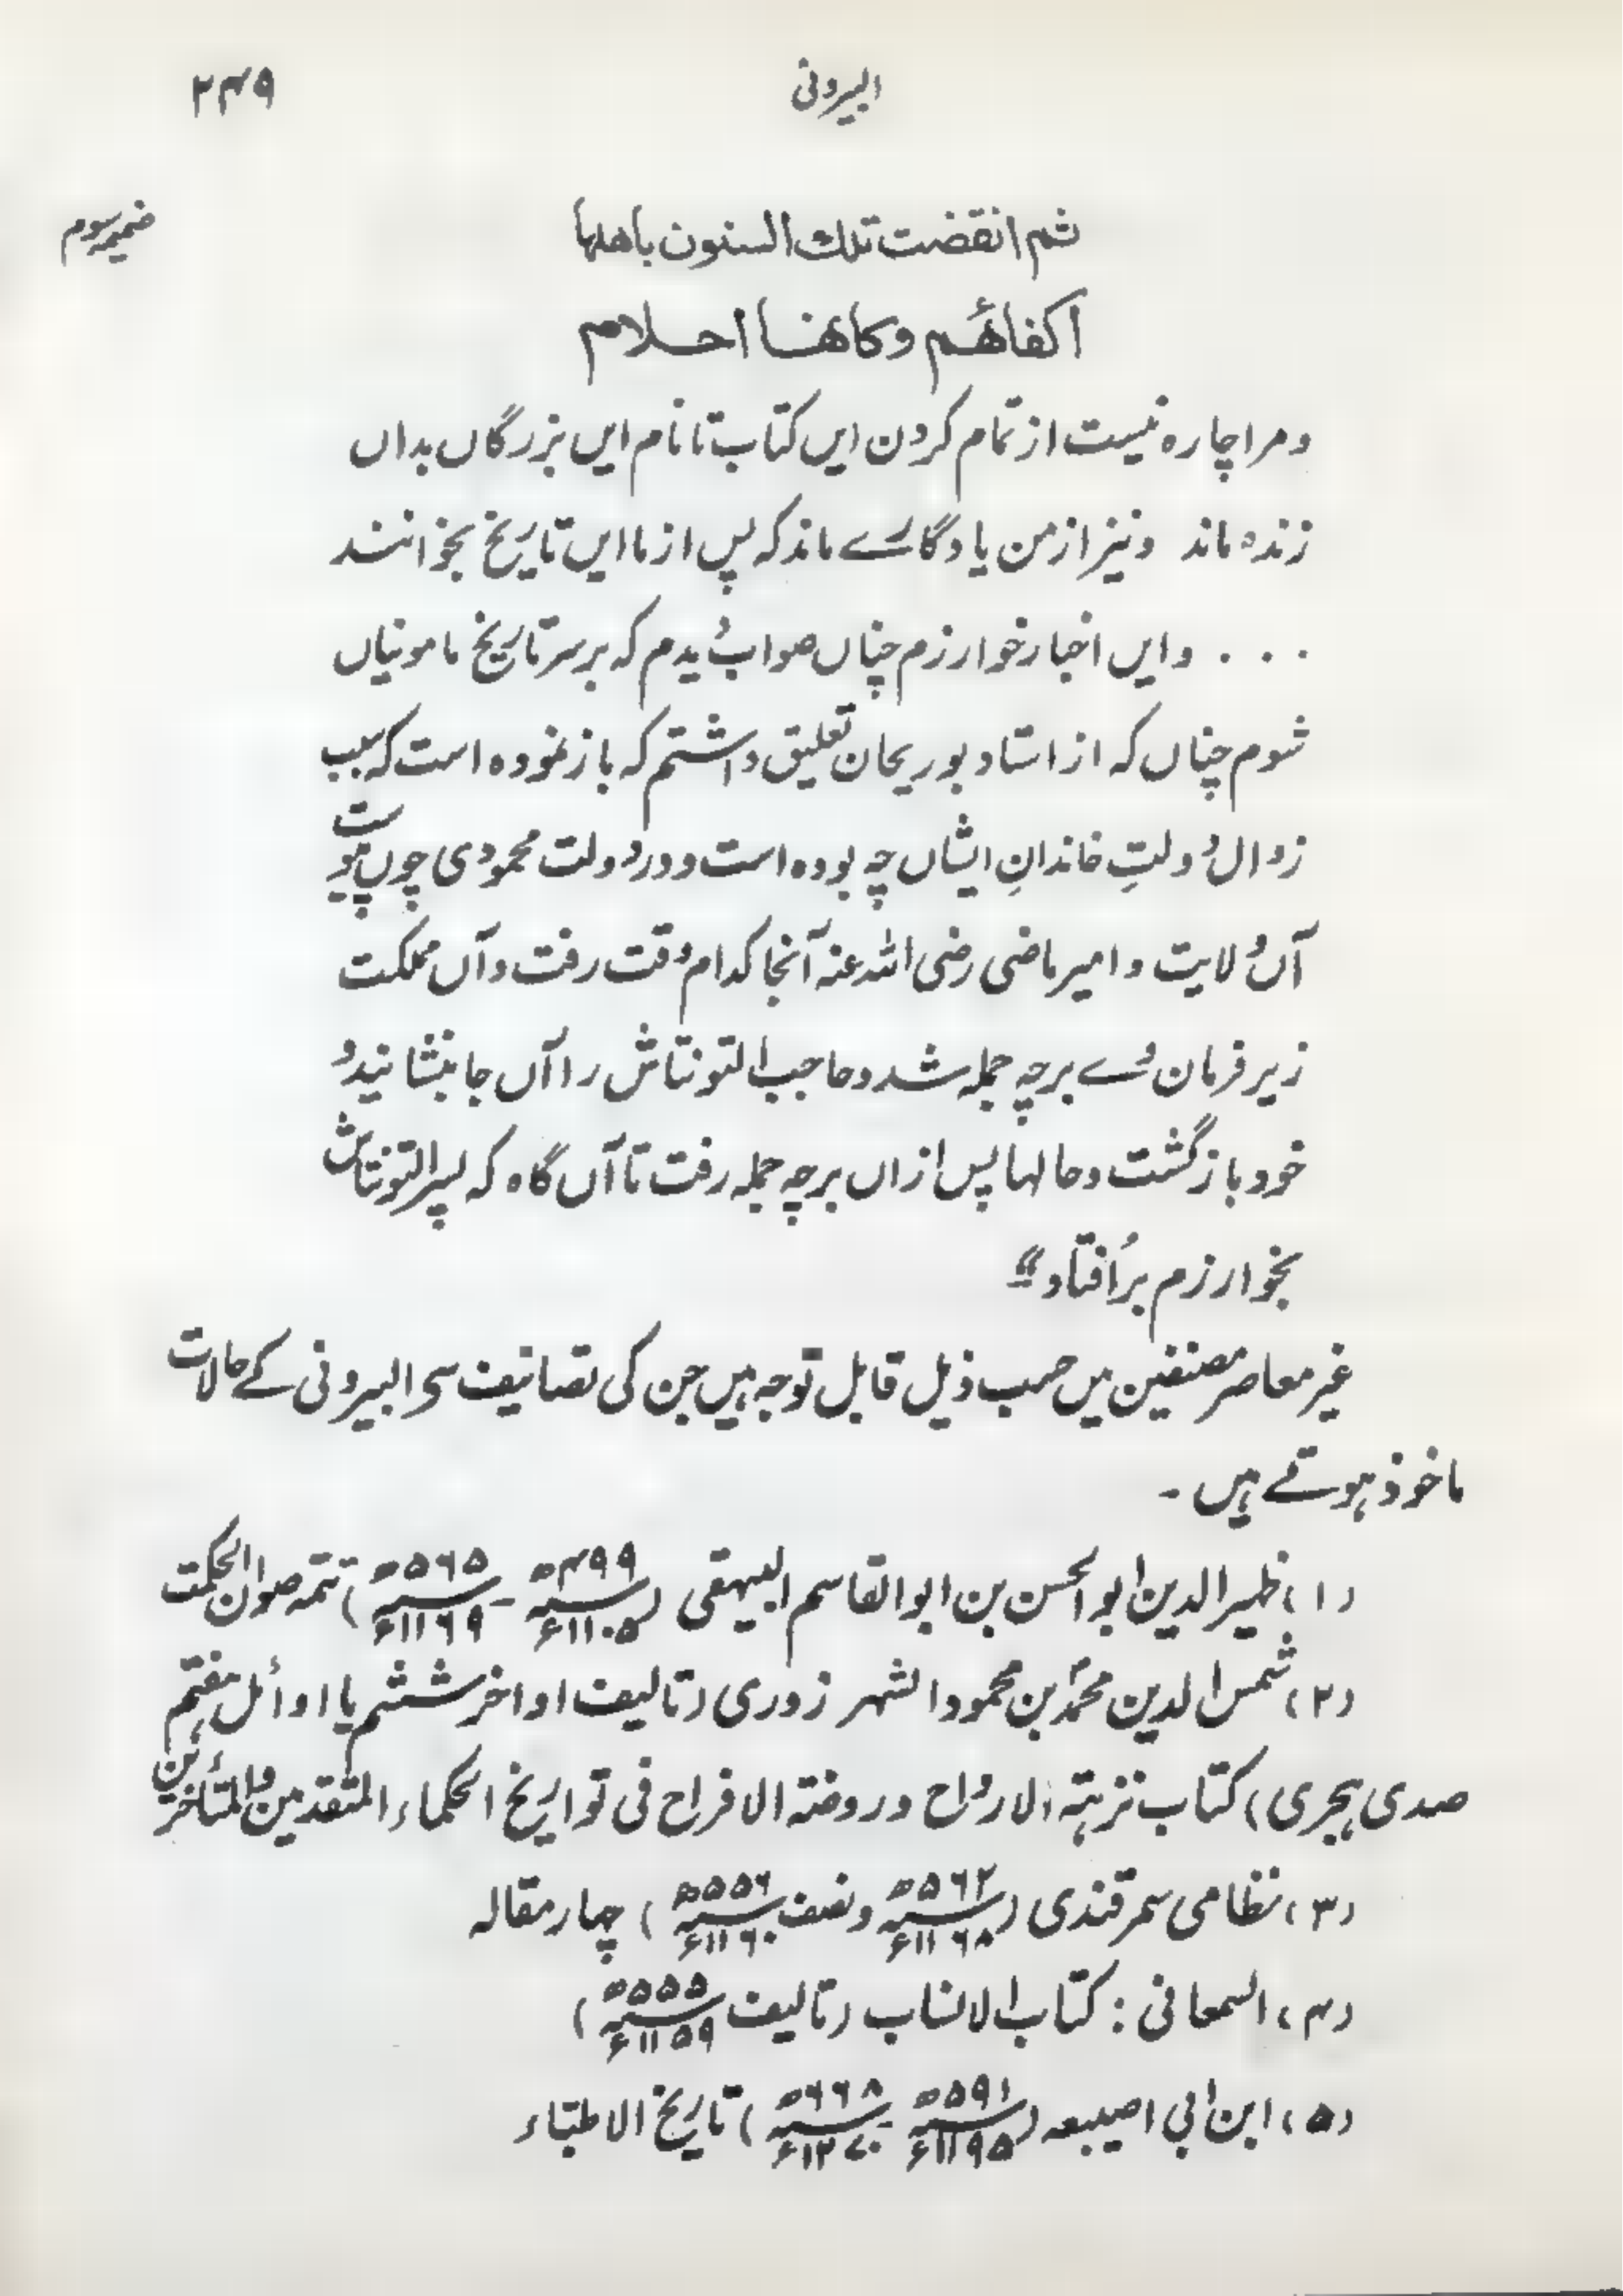 البیرونی
۲۴۹
ضمیمہ سوم
ثم انقضت تلك السنون باهلها
اكفائهم وكانهنا احلام
و مرا چاره نیست از تمام کردن ایں کتاب تا نام ایں بزرگاں بداں
زنده ماند و نیز از من یادگارے ماند که پس از ما ایں تاریخ بخوانند
. . . و ایں اخبار خوارزم چناں صواب دیدم که بر سر تاریخ مامونیاں
شوم چناں که از استاد بوریحان تعلیق داشتم که باز نموده است که سبب
زوال دولتِ خاندانِ ایشاں چه بوده است و در دولت محمودی چوں پیوست
آں ولایت و امیر ماضی رضی الله عنہ آنجا کدام وقت رفت و آں مملکت
زیر فرمان وے برچه جمله شد و حاجب التونتاش را آں جا بنشانید و
خود بازگشت و حالہا پس ازاں برچه جمله رفت تا آں گاه که پسر التونتاش
بخوارزم براُفتاد"
غیر معاصر مصنفین میں حسب ذیل قابل توجہ ہیں جن کی تصانیف سے البیرونی کے حالات
ماخوذ ہوتے ہیں ۔
(۱) ظہیر الدین ابو الحسن بن ابو القاسم البیہقی (۴۹۹ھ / ۱۱۰۵ء – ۵۶۵ھ / ۱۱۶۹ء) تتمہ صوان الحکمت
(۲) شمس الدین محمد بن محمود الشہر زوری (تالیف اواخر ششم یا اوائل ہفتم
صدی ہجری) کتاب نزہتہ الارواح و روضتہ الافراح فی تواریخ الحکماء المتقدمین والمتأخرین
(۳) نظامی سمرقندی (۵۶۲ھ / ۱۱۶۸ء و نصف ۵۵۶ھ / ۱۱۶۰ء) چہار مقالہ
(۴) السمعانی : کتاب الانساب (تالیف ۵۵۵ھ / ۱۱۵۹ء)
(۵) ابن ابی اصیبعہ (۵۹۱ھ / ۱۱۹۵ء – ۶۶۸ھ / ۱۲۷۰ء) تاریخ الاطباء